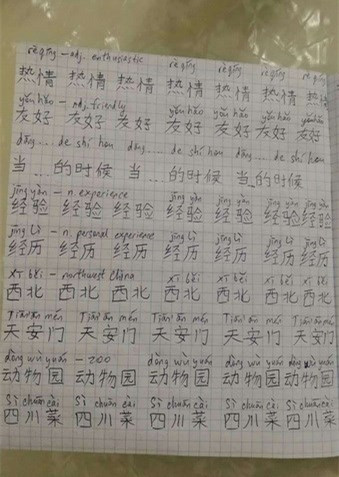 rè qíng – adj. enthusiastic rè qíng rè qíng rè qíng rè qíng
热情 热情 热情 热情 热情 热情 热情
yǒu hǎo – adj. friendly yǒu hǎo yǒu hǎo yǒu hǎo yǒu hǎo
友好 友好 友好 友好 友好 友好 友好
dāng .... de shí hou dāng ... de shí hou dāng ... de shí hou
当 ... 的时候 当 ... 的时候 当 ... 的时候
jīng yàn – n. experience jīng yàn jīng yàn jīng yàn jīng yàn
经验 经验 经验 经验 经验 经验 经验
jīng lì – n. personal experience jīng lì jīng lì jīng lì jīng lì
经历 经历 经历 经历 经历 经历 经历
xī běi – northwest China xī běi xī běi xī běi xī běi
西北 西北 西北 西北 西北 西北 西北
Tiān ān mén Tiān ān mén Tiān ān mén Tiān ān mén Tiān ān mén
天安门 天安门 天安门 天安门 天安门
dòng wù yuán – zoo dòng wù yuán dòng wù yuán dòng wù yuán
动物园 动物园 动物园 动物园 动物园
Sì chuān cài Sì chuān cài Sì chuān cài Sì chuān cài Sì chuān cài
四川菜 四川菜 四川菜 四川菜 四川菜